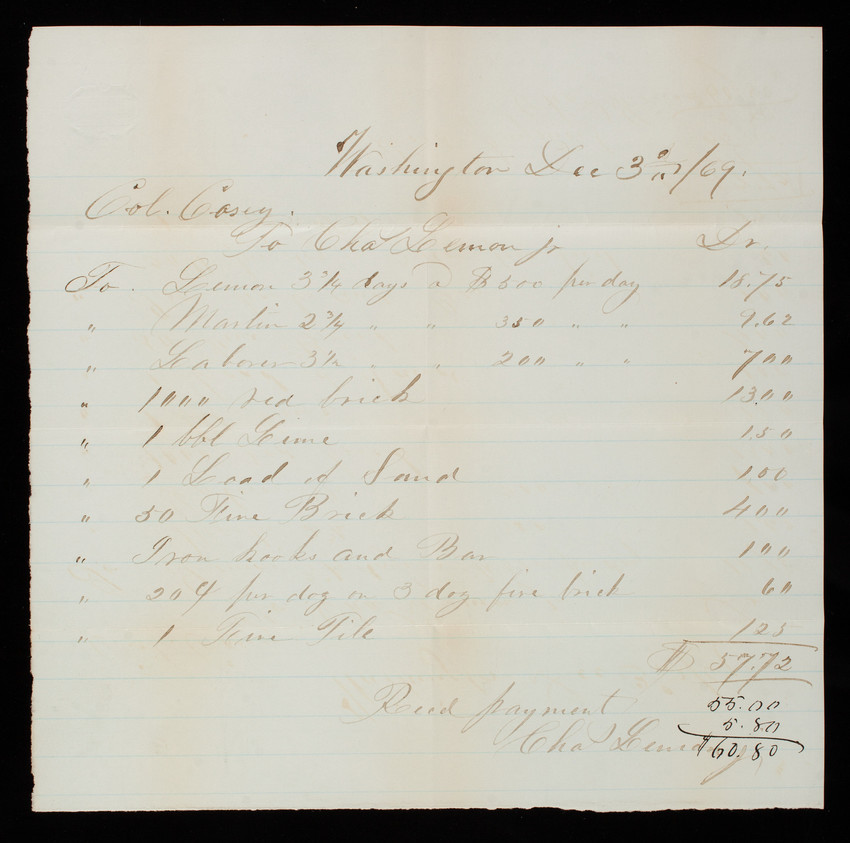 Washington Dec 30th/69.
Col. Casey.
To Chas Lemon jr Dr.
To. Lemon 3 3/4 days a $500 per day 18.75
" Martin 2 3/4 " " 350 " " 9.62
" Laborer 3 1/2 " " 200 " " 700
" 1000 red brick 13.00
" 1 bbl Lime 1.50
" 1 Load of Sand 1.00
" 50 Fire Brick 400
" Iron hooks and Bar 100
" 20¢ per dog on 3 dog fire brick 60
" 1 Fire Tile 125
$ 57.72
Recd payment 55.00
5.80
Chas Lemon jr $60.80